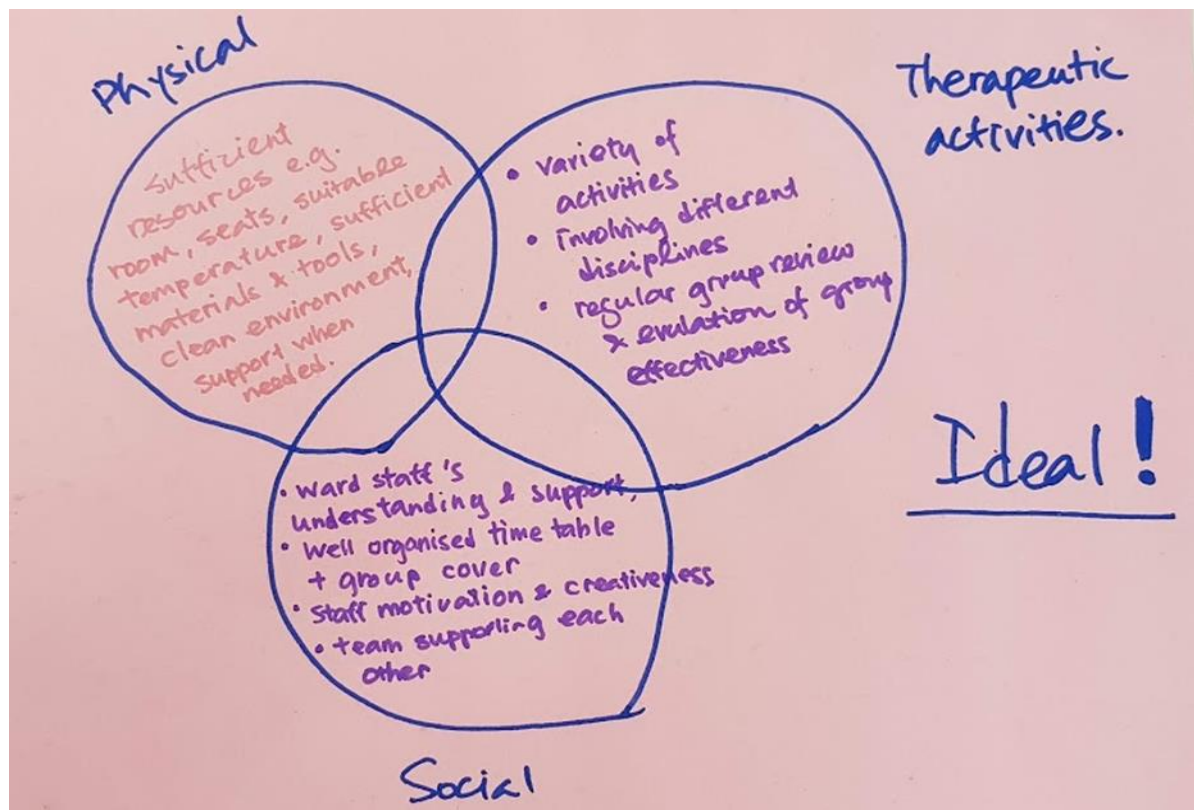 Physical
sufficient
resources e.g.
room, seats, suitable
temperature, sufficient
materials & tools,
clean environment,
support when
needed.
Therapeutic
activities.
• variety of
activities
• involving different
disciplines
• regular group review
& evulation of group
effectiveness
Ideal!
• ward staff's
understanding & support,
• well organised time table
+ group cover
• staff motivation & creativeness
• team supporting each
other
Social